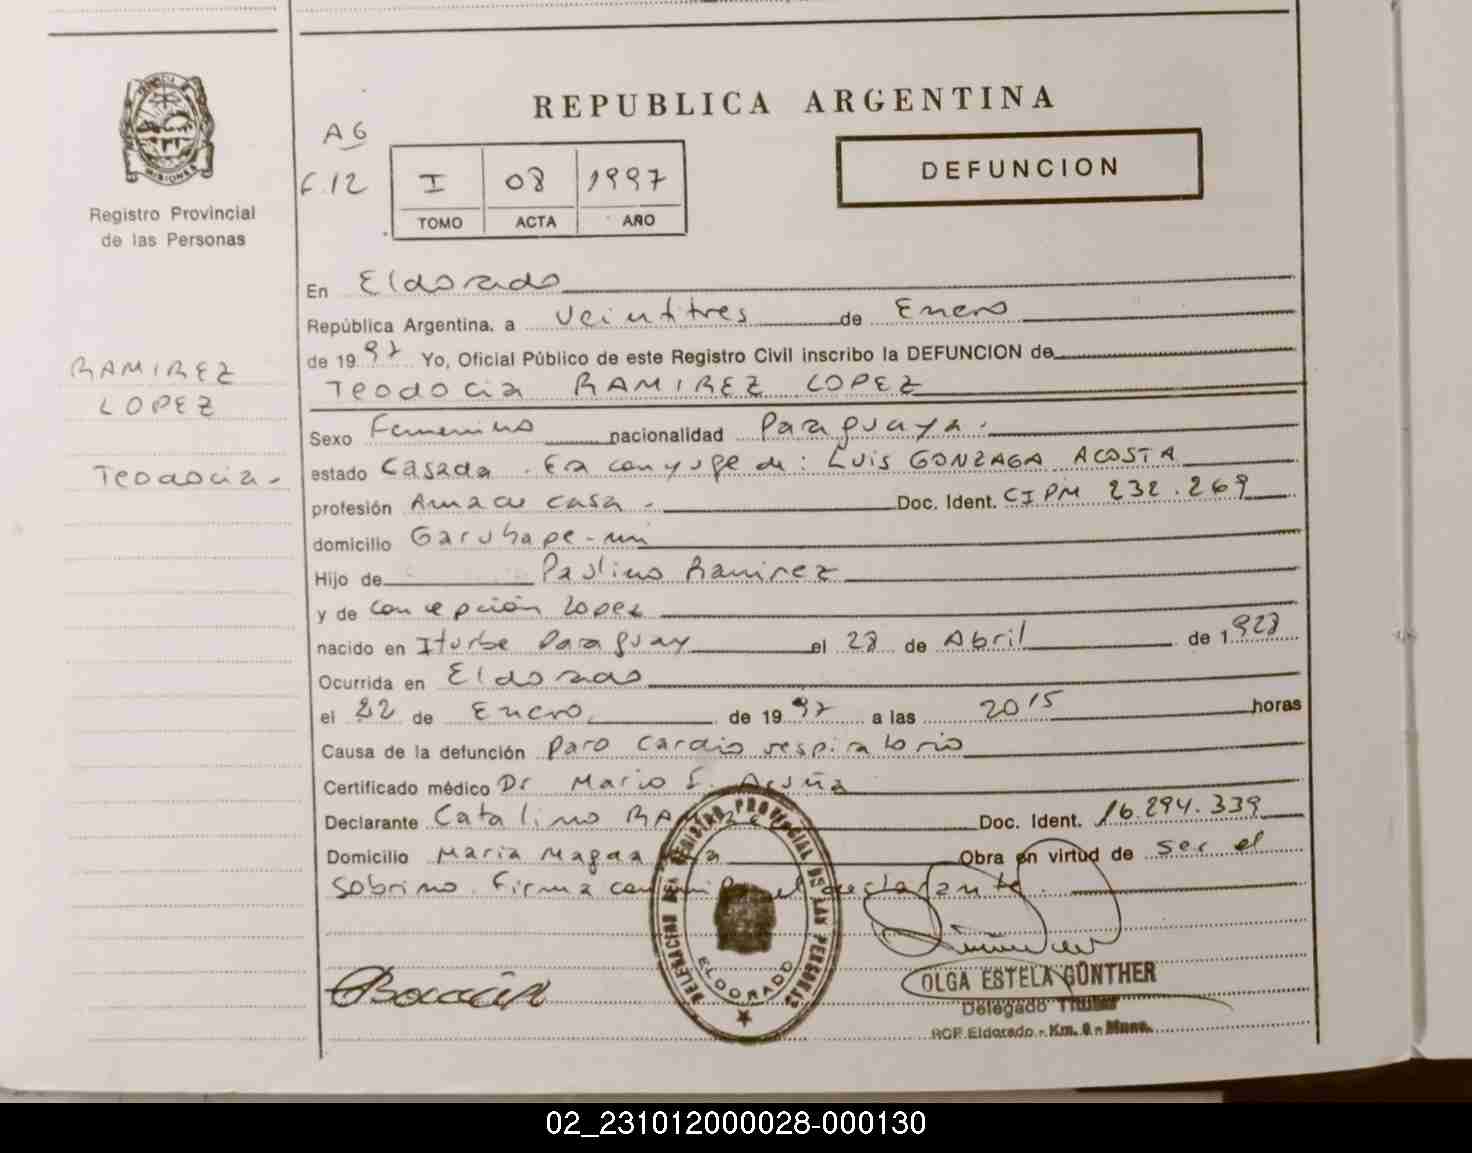 REPUBLICA ARGENTINA
A6
F.12
I 08 1997
TOMO ACTA AÑO
DEFUNCION
MISIONES
Registro Provincial
de las Personas
RAMIREZ
LOPEZ
Teodocia.
En Eldorado
República Argentina, a Veintitres de Enero
de 1997 Yo, Oficial Público de este Registro Civil inscribo la DEFUNCION de
Teodocia RAMIREZ LOPEZ
Sexo Femenino nacionalidad Paraguaya.
estado Casada. Era conyuge de: LUIS GONZAGA ACOSTA
profesión Ama de casa. Doc. Ident. CIPM 232.269
domicilio Garuhape-mi
Hijo de Paulino Ramirez
y de Concepción Lopez
nacido en Iturbe Paraguay el 28 de Abril de 1.928
Ocurrida en Eldorado
el 22 de Enero de 1997 a las 2015 horas
Causa de la defunción Paro Cardio respiratorio
Certificado médico Dr Mario E. Acuña
Declarante Catalino RAMIREZ Doc. Ident. 16.294.339
Domicilio Maria Magdalena Obra en virtud de ser el
Sobrino. Firma conmigo el declarante.
DELEGACION DEL REGISTRO PROVINCIAL DE LAS PERSONAS
ELDORADO
OLGA ESTELA GÜNTHER
Delegado Titular
RCP Eldorado - Km. 9 - Mnes.
02_231012000028-000130